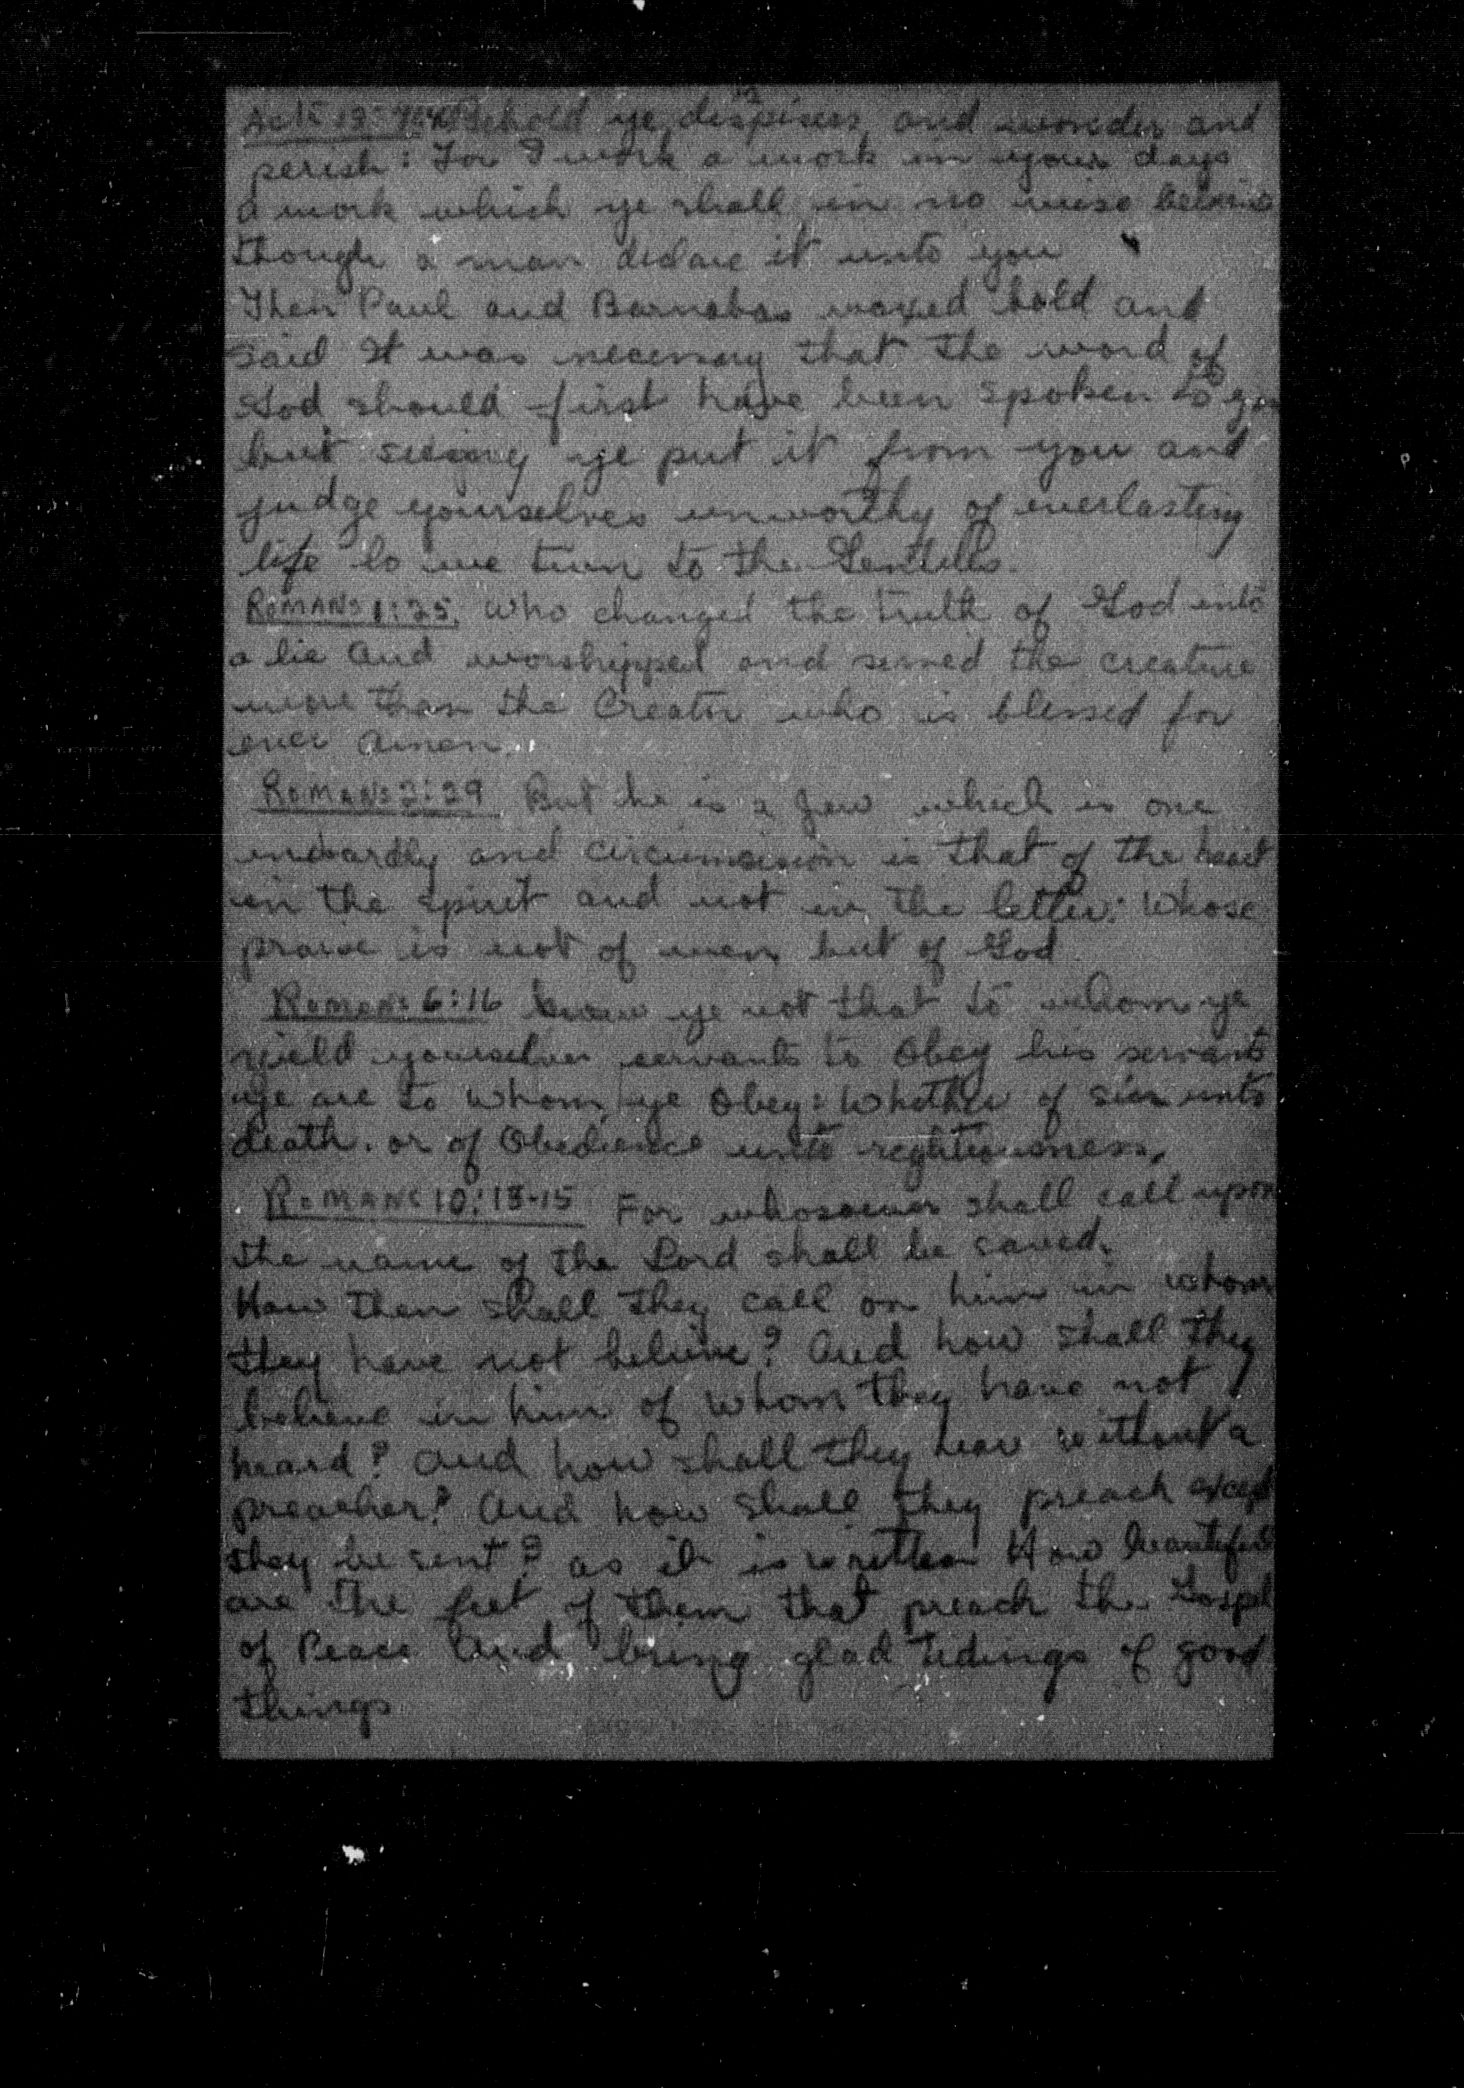 Acts 13: Behold ye dispisers, and wonder and
perish: For I work a work in your days
a work which ye shall in no wise believe
though a man declare it unto you
Then Paul and Barnabas waxed bold and
said It was necessary that the word of
God should first have been spoken to you
but seeing ye put it from you and
judge yourselves unworthy of everlasting
life lo we turn to the Gentiles.
ROMANS 1:25. Who changed the truth of God into
a lie and worshipped and served the creature
more than the Creator who is blessed for
ever Amen.
ROMANS 2:29 But he is a Jew which is one
inwardly and circumcision is that of the heart
in the spirit and not in the letter: Whose
praise is not of men but of God
Romans 6:16 Know ye not that to whom ye
yield yourselves servants to Obey his servants
ye are to whom ye Obey: Whether of sin unto
death. or of Obedience unto rightiousness.
ROMANS 10:13-15 For whosoever shall call upon
the name of the Lord shall be saved.
How then shall they call on him in whom
they have not believe? And how shall they
believe in him of whom they have not
heard? And how shall they hear without a
preacher? And how shall they preach except
they be sent? as it is written How beautiful
are the feet of them that preach the Gospel
of Peace and bring glad tidings of good
things